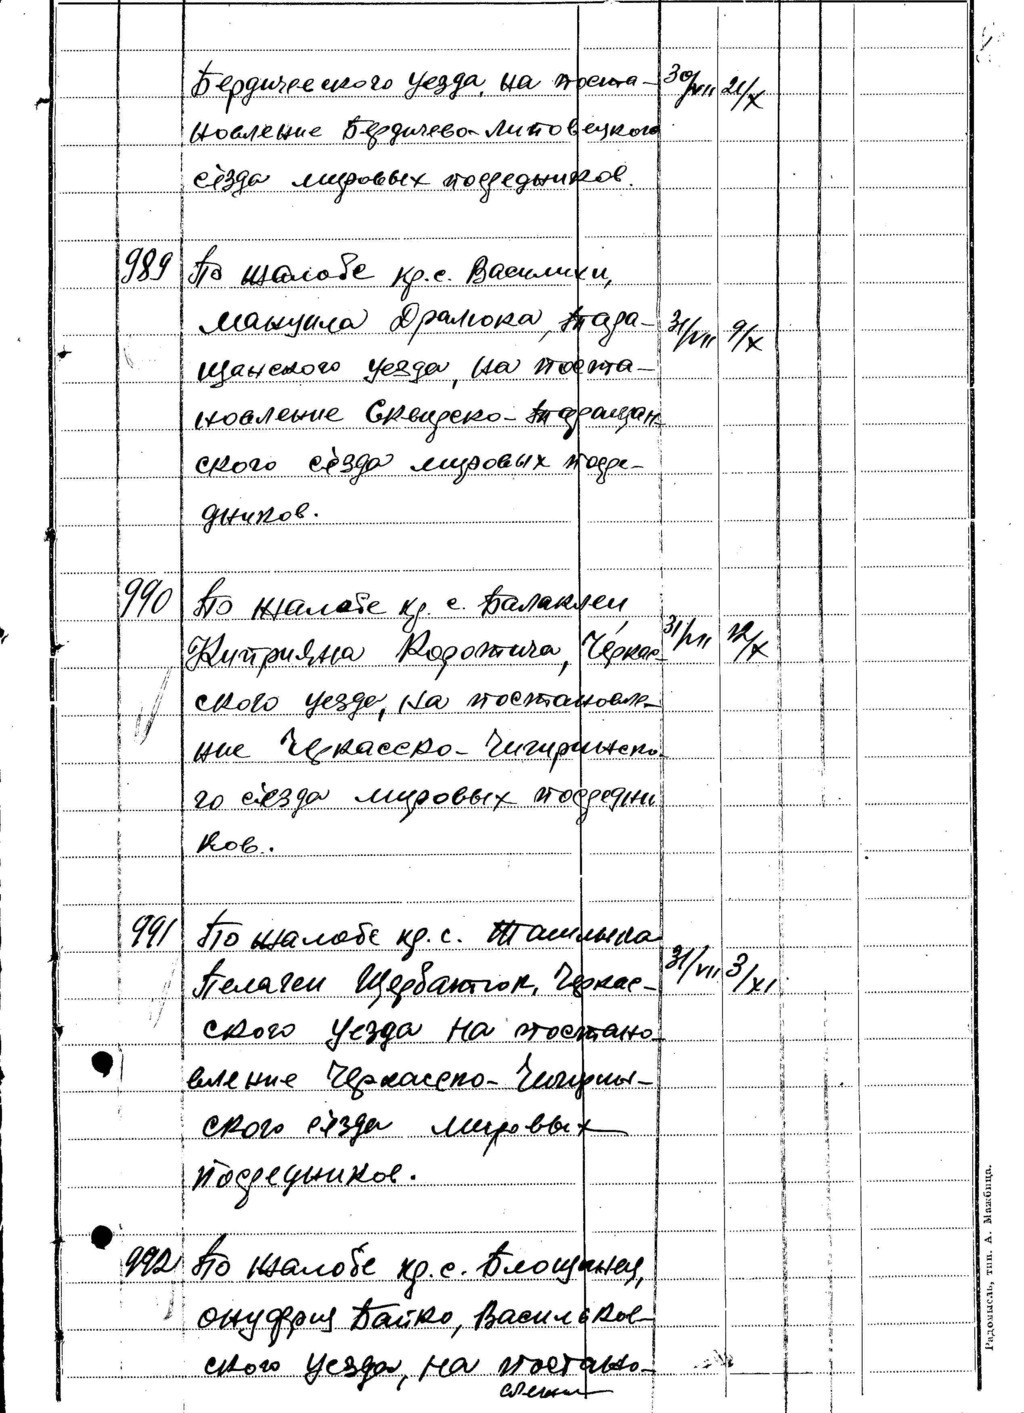 Бердичевского уезда, на поста- 30/VII 21/X
новление Бердичево-Липовецкого
съезда мировых посредников.
989 По жалобе кр. с. Василихи,
Мануила Дралюка, Тара- 31/VII 9/X
щанского уезда, на поста-
новление Сквирско-Таращан-
ского съезда мировых посре-
дников.
990 По жалобе кр. с. Балаклеи
Киприяна Коротича, Черкас- 31/VII 12/X
ского уезда, на постановле-
ние Черкасско-Чигиринско-
го съезда мировых посредни
ков.
991 По жалобе кр. с. Ташлыка
Пелагеи Щербантюк, Черкас- 31/VII 3/XI
ского уезда на постано-
вление Черкасско-Чигирин-
ского съезда мировых
посредников.
992 По жалобе кр. с. Блощинец,
Онуфрия Байко, Васильков-
ского уезда, на постано-
вление
Радомысль, тип. А. Мажбица.